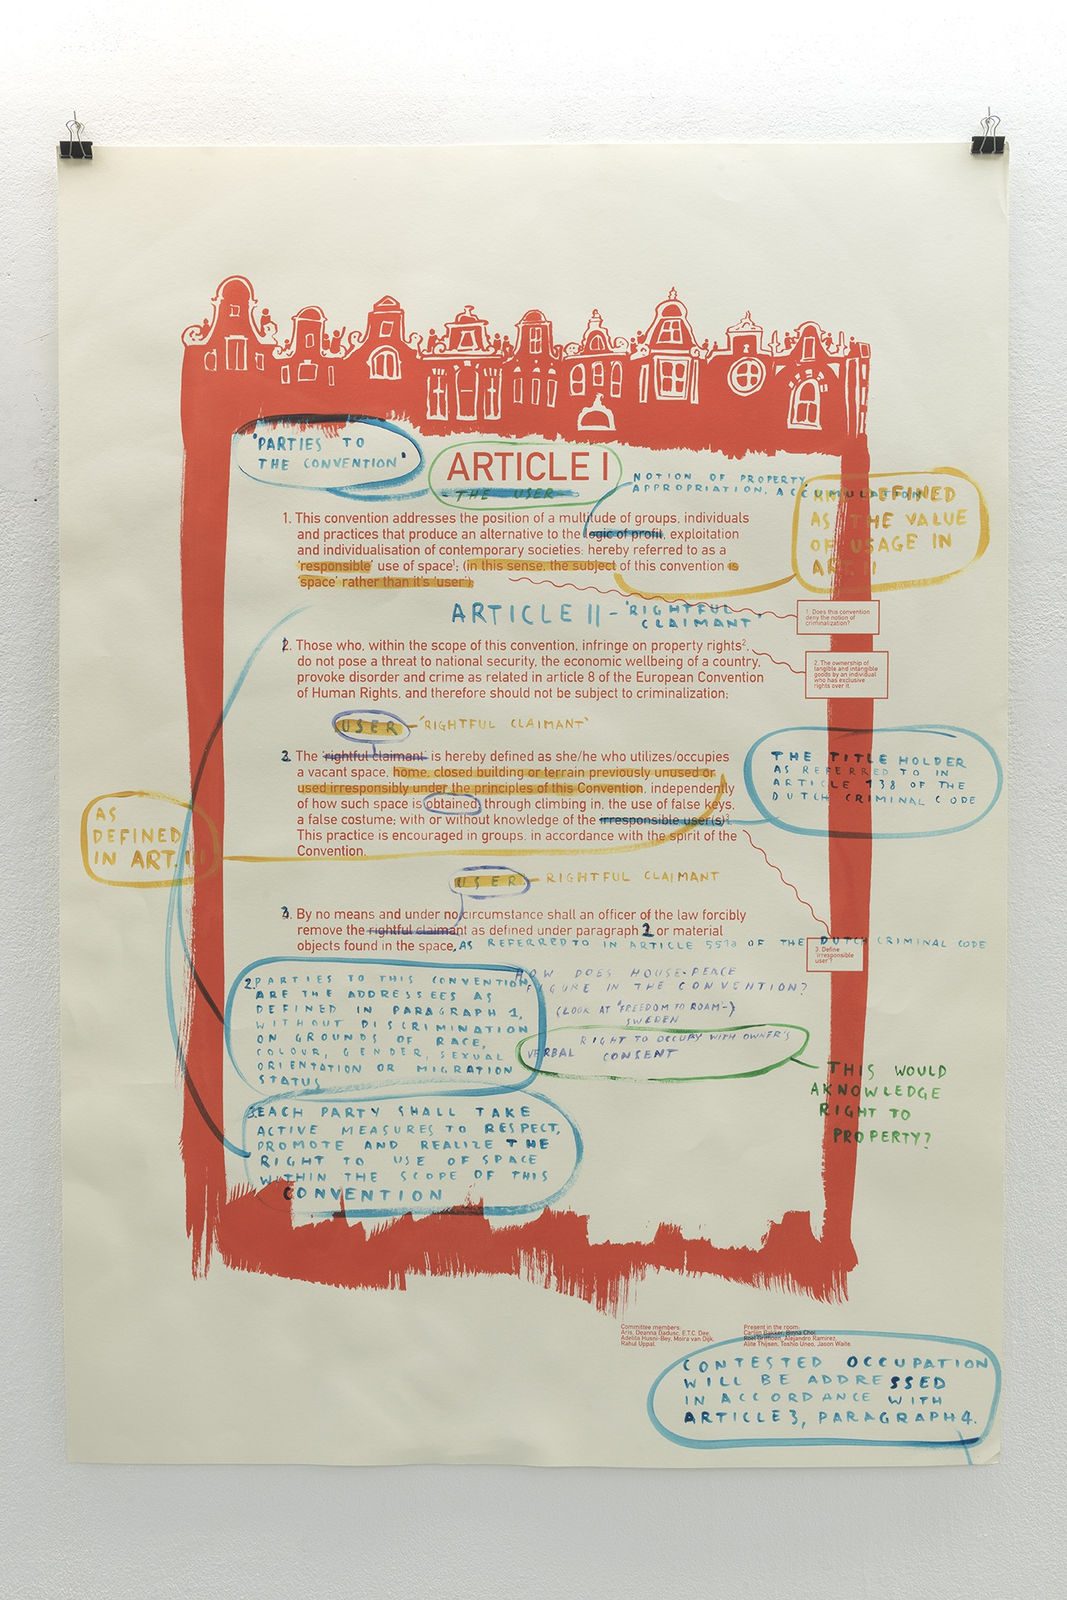 'PARTIES TO
THE CONVENTION'
ARTICLE I
- THE USER
NOTION OF PROPERTY
APPROPRIATION, ACCUMULATION
DEFINED
AS THE VALUE
OF USAGE IN
ART. II
1. This convention addresses the position of a multitude of groups, individuals
and practices that produce an alternative to the logic of profit, exploitation
and individualisation of contemporary societies; hereby referred to as a
'responsible' use of space¹; (in this sense, the subject of this convention is
'space' rather than it's 'user');
ARTICLE II - 'RIGHTFUL
CLAIMANT'
1. Does this convention
deny the notion of
criminalization?
2. Those who, within the scope of this convention, infringe on property rights²,
do not pose a threat to national security, the economic wellbeing of a country,
provoke disorder and crime as related in article 8 of the European Convention
of Human Rights, and therefore should not be subject to criminalization;
2. The ownership of
tangible and intangible
goods by an individual
who has exclusive
rights over it.
USER - 'RIGHTFUL CLAIMANT'
3. The 'rightful claimant' is hereby defined as she/he who utilizes/occupies
a vacant space, home, closed building or terrain previously unused or
used irresponsibly under the principles of this Convention, independently
of how such space is obtained; through climbing in, the use of false keys,
a false costume; with or without knowledge of the irresponsible user(s)³.
This practice is encouraged in groups, in accordance with the spirit of the
Convention.
THE TITLE HOLDER
AS REFERRED TO IN
ARTICLE 138 OF THE
DUTCH CRIMINAL CODE
AS
DEFINED
IN ART. III
USER - RIGHTFUL CLAIMANT
3. By no means and under no circumstance shall an officer of the law forcibly
remove the rightful claimant as defined under paragraph 2 or material
objects found in the space, AS REFERRED TO IN ARTICLE 551a OF THE DUTCH CRIMINAL CODE
3. Define
'irresponsible
user'?
2. PARTIES TO THIS CONVENTION
ARE THE ADDRESSEES AS
DEFINED IN PARAGRAPH 1,
WITHOUT DISCRIMINATION
ON GROUNDS OF RACE,
COLOUR, GENDER, SEXUAL
ORIENTATION OR MIGRATION
STATUS
HOW DOES HOUSE-PEACE
FIGURE IN THE CONVENTION?
(LOOK AT "FREEDOM TO ROAM-)
SWEDEN
RIGHT TO OCCUPY WITH OWNER'S
VERBAL CONSENT
THIS WOULD
AKNOWLEDGE
RIGHT TO
PROPERTY?
3. EACH PARTY SHALL TAKE
ACTIVE MEASURES TO RESPECT,
PROMOTE AND REALIZE THE
RIGHT TO USE OF SPACE
WITHIN THE SCOPE OF THIS
CONVENTION
Committee members:
Aris, Deanna Dadusc, E.T.C. Dee,
Adelita Husni-Bey, Moira van Dijk,
Rahul Uppal.
Present in the room:
Carlijn Bakker, Binna Choi,
Roel Griffioen, Alejandro Ramirez,
Alite Thijsen, Toshio Uneo, Jason Waite.
CONTESTED OCCUPATION
WILL BE ADDRESSED
IN ACCORDANCE WITH
ARTICLE 3, PARAGRAPH 4.